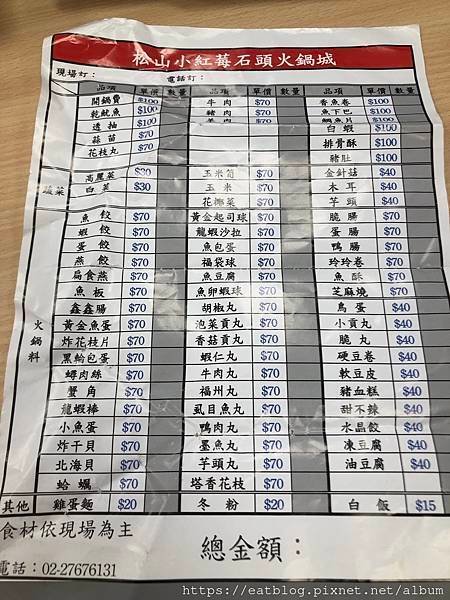 松山小紅莓石頭火鍋城
現場訂： 電話訂：
品項 單價 數量 品項 單價 數量 品項 單價 數量
開鍋費 $100 牛肉 $70 香魚卷 $100
乾魷魚 $100 豬肉 $70 魚下巴 $100
透抽 $100 羊肉 $70 鯛魚片 $100
蒜苗 $70 白蝦 $100
花枝丸 $70 排骨酥 $100
豬肚 $100
蔬菜
高麗菜 $30 玉米筍 $70 金針菇 $40
白菜 $30 玉米 $70 木耳 $40
花椰菜 $70 芋頭 $40
火鍋料
魚餃 $70 黃金起司球 $70 脆腸 $70
蝦餃 $70 龍蝦沙拉 $70 蛋腸 $70
蛋餃 $70 魚包蛋 $70 鴨腸 $70
燕餃 $70 福袋球 $70 玲玲卷 $70
扁食燕 $70 魚豆腐 $70 魚酥 $70
魚板 $70 魚卵蝦球 $70 芝麻燒 $70
鑫鑫腸 $70 胡椒丸 $70 鳥蛋 $40
黃金魚蛋 $70 泡菜貢丸 $70 小貢丸 $40
炸花枝片 $70 香菇貢丸 $70 脆丸 $40
黑輪包蛋 $70 蝦仁丸 $70 硬豆卷 $40
蟳肉絲 $70 牛肉丸 $70 軟豆皮 $40
蟹角 $70 福州丸 $70 豬血糕 $40
龍蝦棒 $70 虱目魚丸 $70 甜不辣 $40
小魚蛋 $70 鴨肉丸 $70 水晶餃 $40
炸干貝 $70 墨魚丸 $70 凍豆腐 $40
北海貝 $70 芋頭丸 $70 油豆腐 $40
蛤蠣 $70 塔香花枝 $70
其他 雞蛋麵 $20 冬粉 $20 白飯 $15
食材依現場為主
總金額：
電話：02-27676131
https://eatblog.pixnet.net/album